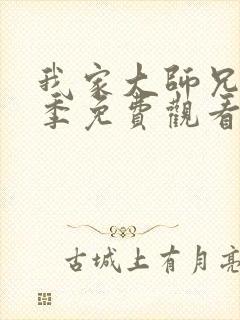 我家大師兄
季免費觀看
古城上有月亮